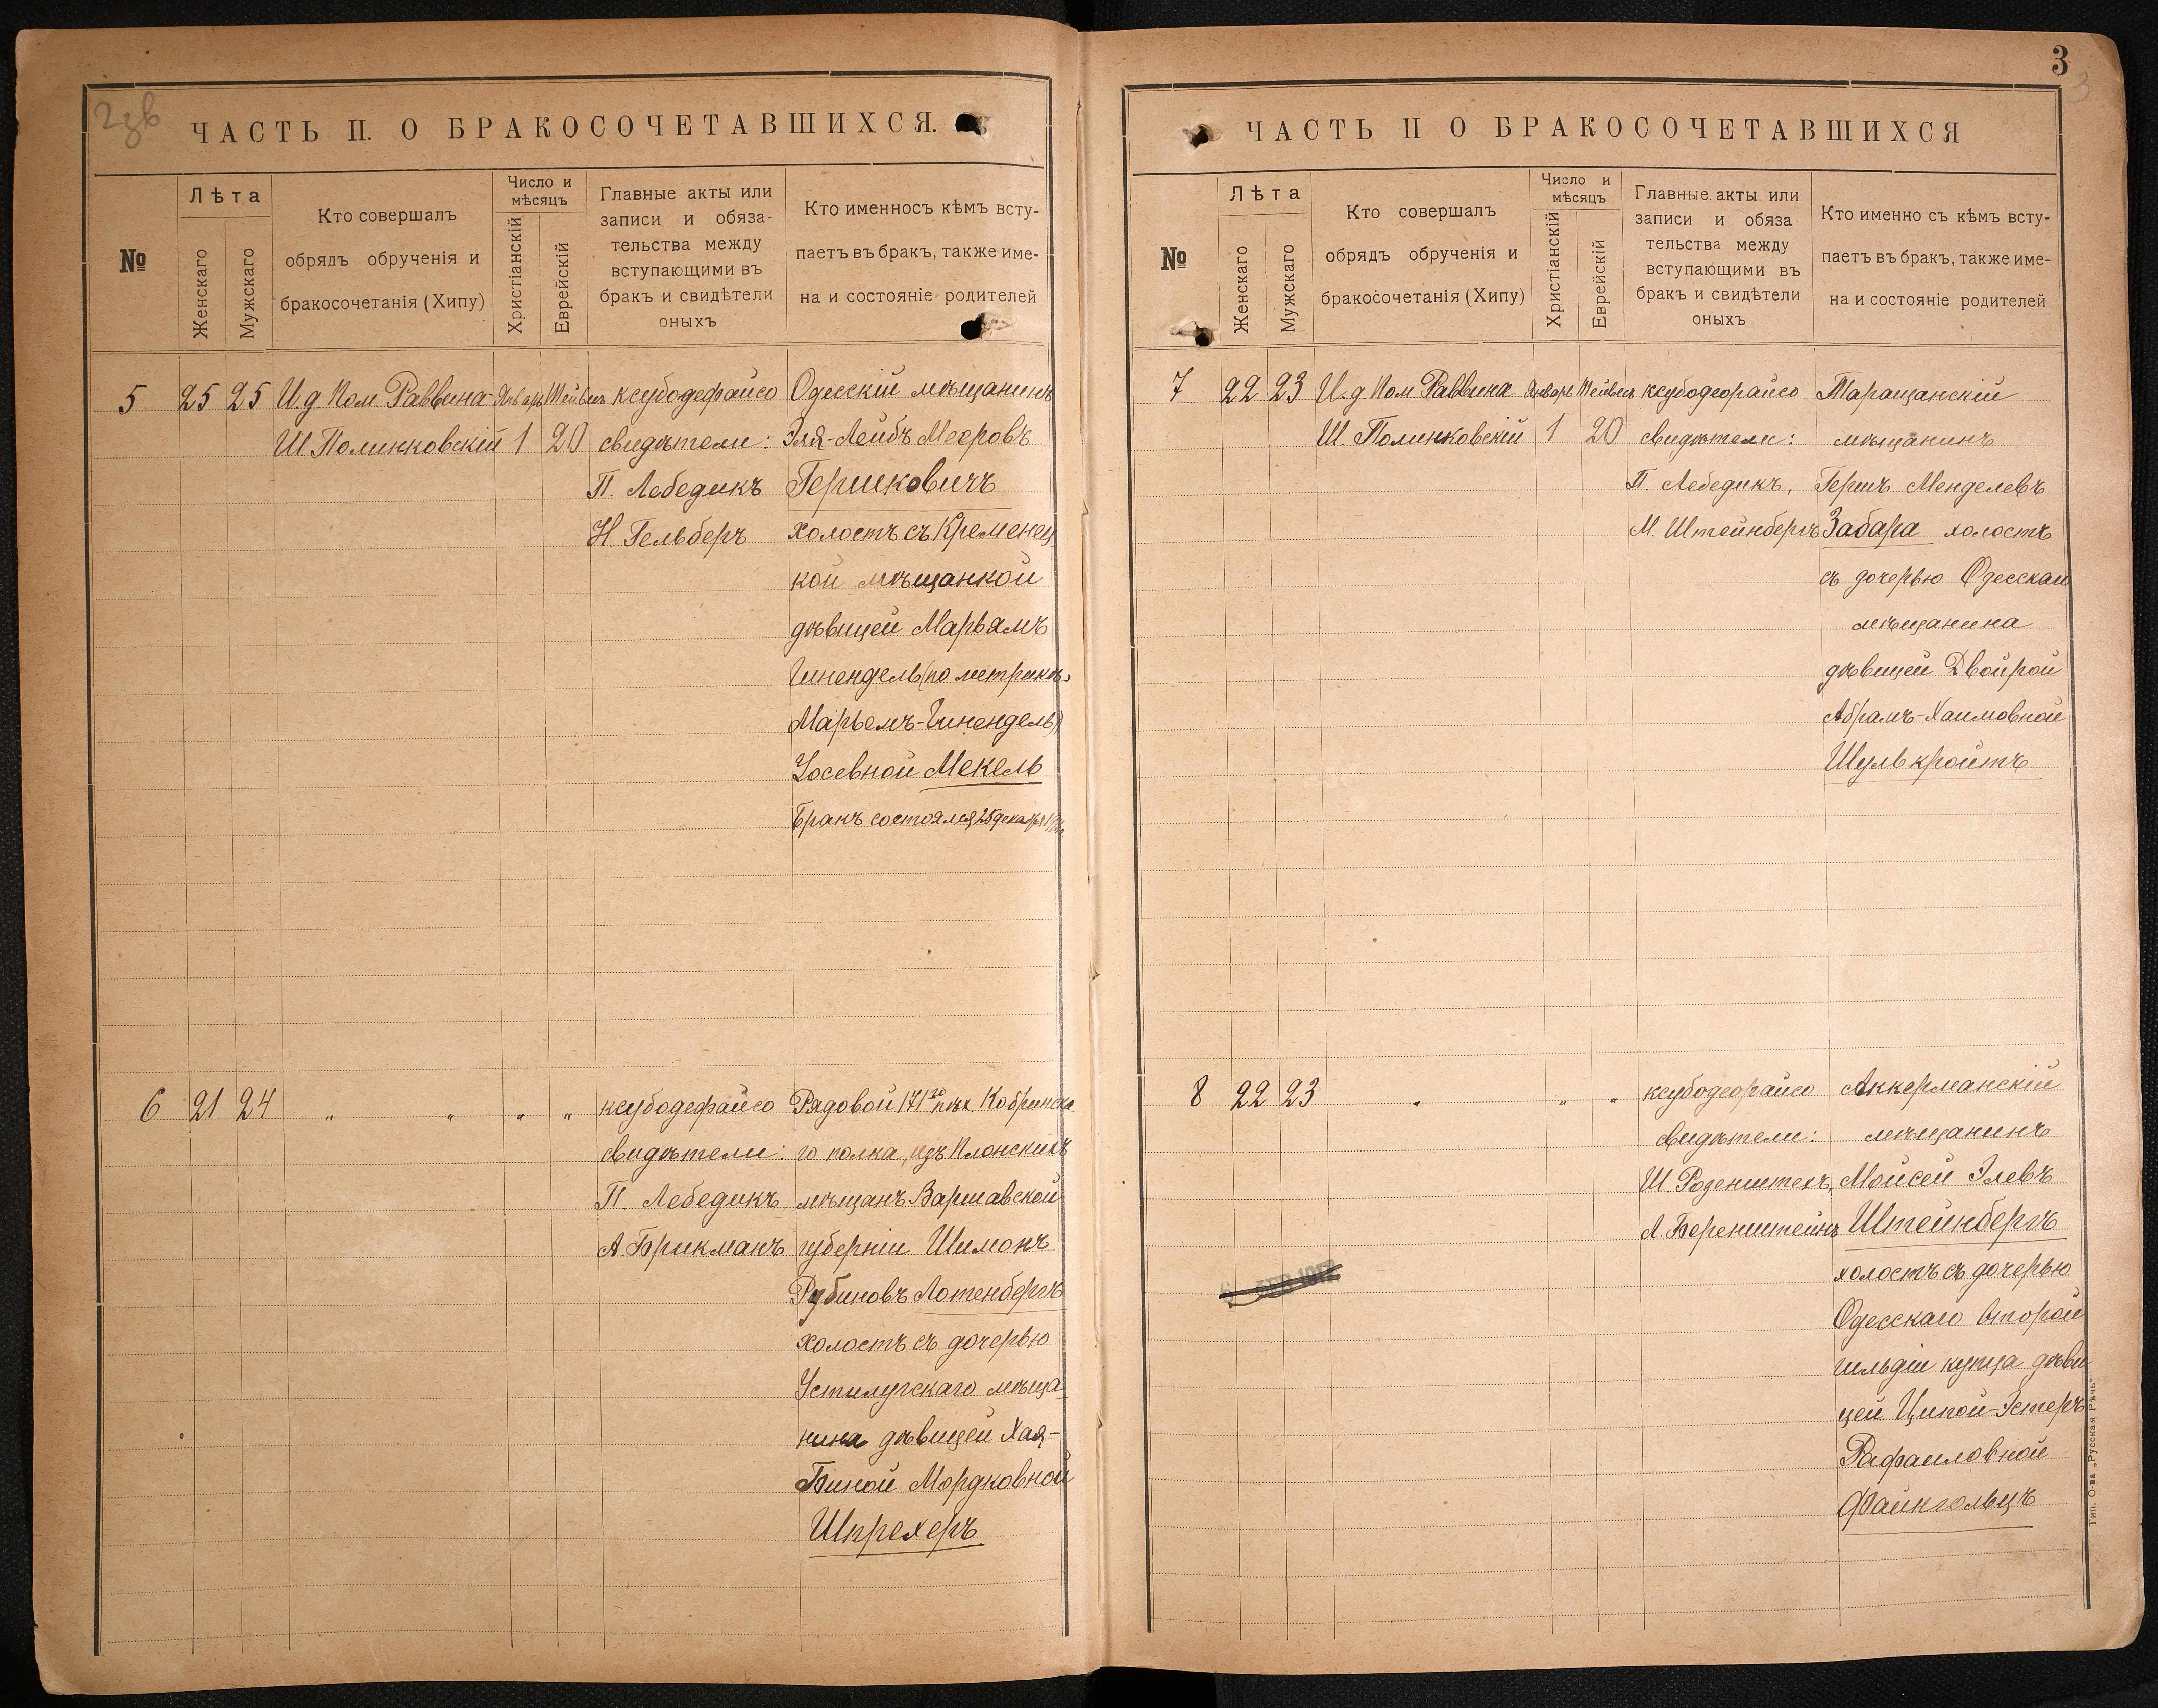 2зв
ЧАСТЬ II. О БРАКОСОЧЕТАВШИХСЯ.
№
Лѣта
Женскаго
Мужскаго
Кто совершалъ
обрядъ обрученія и
бракосочетанія (Хипу)
Число и
мѣсяцъ
Христіанскій
Еврейскій
Главные акты или
записи и обяза-
тельства между
вступающими въ
бракъ и свидѣтели
оныхъ
Кто именносъ кѣмъ всту-
паетъ въ бракъ, также име-
на и состояніе родителей
5 25 25 И.д Пом Раввина Январь Тейвесъ ксубодефайсо Одесскій мѣщанинъ
Ш. Полинковскій 1 20 свидѣтели: Эля-Лейбъ Мееровъ
П. Лебедикъ Гершковичъ
Н. Гельберъ холостъ съ Кременец
кой мѣщанкой
дѣвицей Марьямъ
Гинендель (по метрикѣ
Марьемъ-Гинендель)
Іосевной Мекель
Бракъ состоялся 25 декабря
6 21 24 " " " " ксубодефайсо Рядовой 171го пѣх. Кобринска
свидѣтели: го полка, изъ Плонскихъ
П. Лебедикъ мѣщанъ Варшавской
А. Брикманъ губерніи Шимонъ
Рубиновъ Лотенбергъ
холостъ съ дочерью
Устилугскаго мѣща
нина дѣвицей Хая-
Биной Мордковной
Шпрехеръ
3
3
ЧАСТЬ II О БРАКОСОЧЕТАВШИХСЯ
№
Лѣта
Женскаго
Мужскаго
Кто совершалъ
обрядъ обрученія и
бракосочетанія (Хипу)
Число и
мѣсяцъ
Христіанскій
Еврейскій
Главные акты или
записи и обяза
тельства между
вступающими въ
бракъ и свидѣтели
оныхъ
Кто именно съ кѣмъ всту-
паетъ въ бракъ, также име-
на и состояніе родителей
7 22 23 И.д Пом Раввина Январь Тейвесъ ксубодефайсо Таращанскій
Ш. Полинковскій 1 20 свидѣтели: мѣщанинъ
П. Лебедикъ, Гершъ Менделевъ
М. Штейнбергъ Забара холостъ
съ дочерью Одесскаго
мѣщанина
дѣвицей Двойрой
Абрамъ-Хаимовной
Шулькройтъ
8 22 23 " " " ксубодефайсо Аккерманскій
свидѣтели: мѣщанинъ
Ш. Роденштехъ, Мойсей Элевъ
Л. Беренштейнъ Штейнбергъ
холостъ съ дочерью
Одесскаго второй
гильдіи купца дѣви
цей Ципой-Эстеръ
Рафаиловной
Файнгольцъ
Тип. О-ва „Русская Рѣчь"